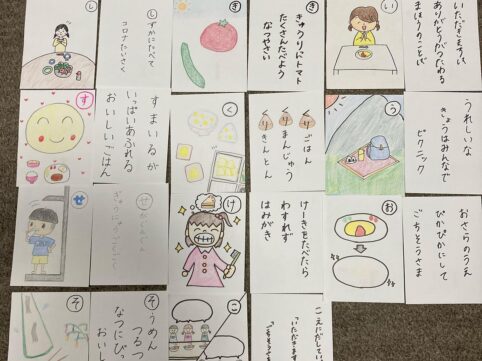 い
ありがとうがつたわる
まほうのことば
き
きゅうりにトマト
たくさんたべよう
なつやさい
し
しずかにたべて
コロナたいさく
う
うれしいな
きょうはみんなで
ピクニック
く
くり ごはん
くり まんじゅう
くり きんとん
す
すまいるが
いっぱいあふれる
おいしいごはん
お
おさらのうえ
ぴかぴかにして
ごちそうさま
け
けーきをたべたら
わすれず
はみがき
せ
こ
こえにだして
「いただきます」
そ
そうめん
つるつ
なつにぴ
おいし